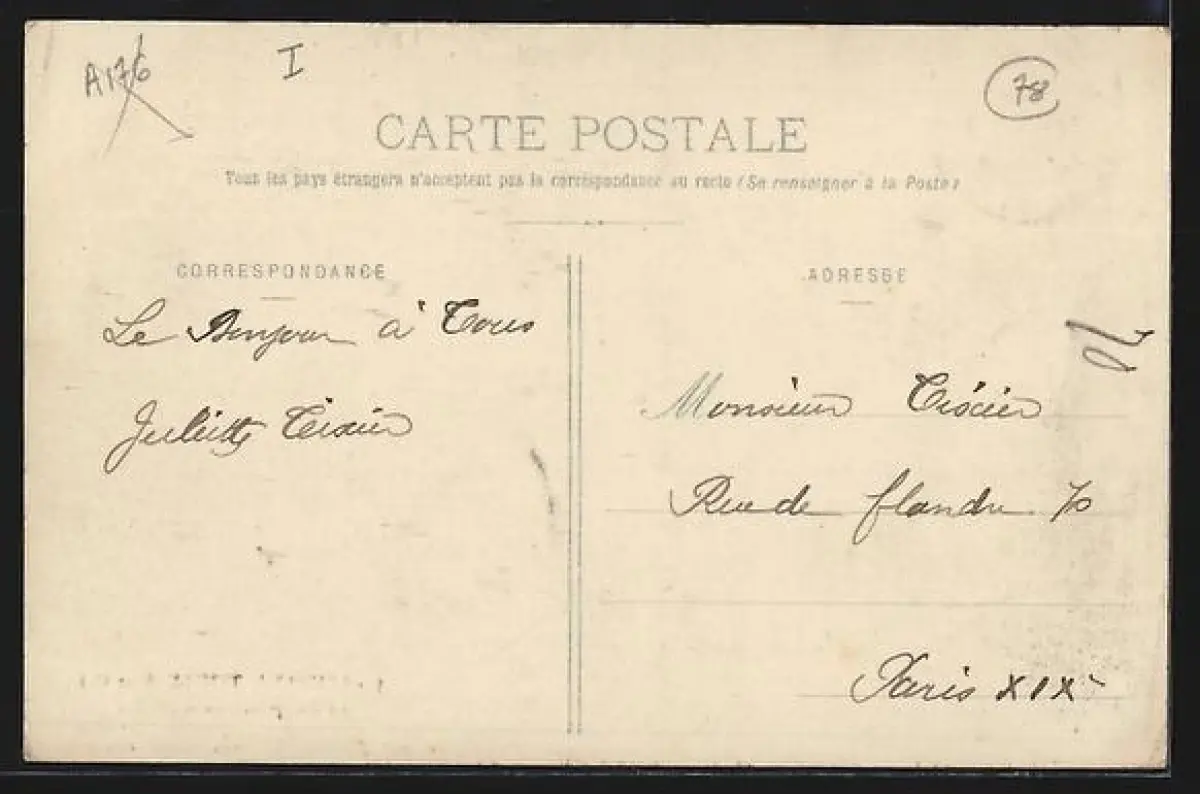 A176
I
78
CARTE POSTALE
Tous les pays étrangers n'acceptent pas la correspondance au recto (Se renseigner à la Poste)
CORRESPONDANCE
ADRESSE
Le Bonjour à Tous
Juliette Tixier
Monsieur Tixier
Rue de flandre 70
Paris XIXe